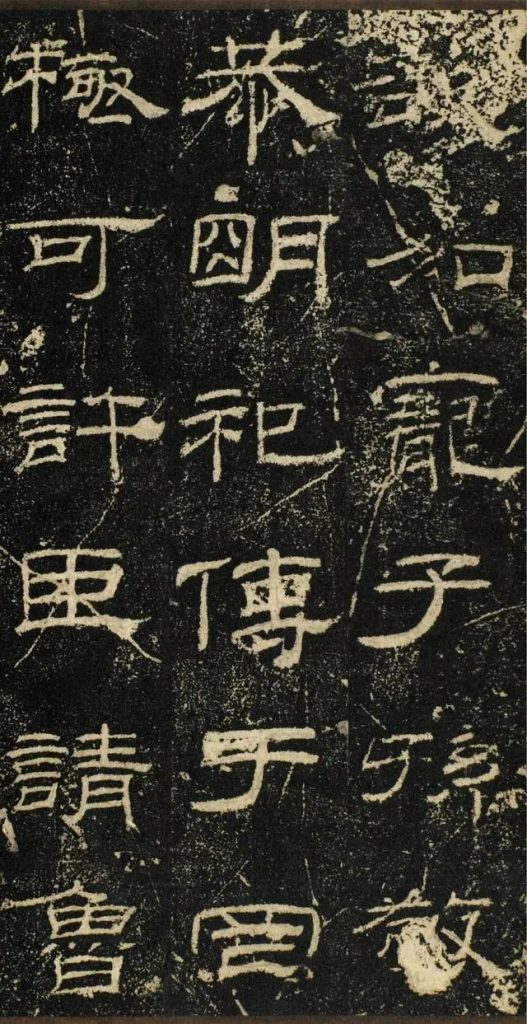 欲加寵子孫敬
恭明祀傳于罔
極可許臣請魯